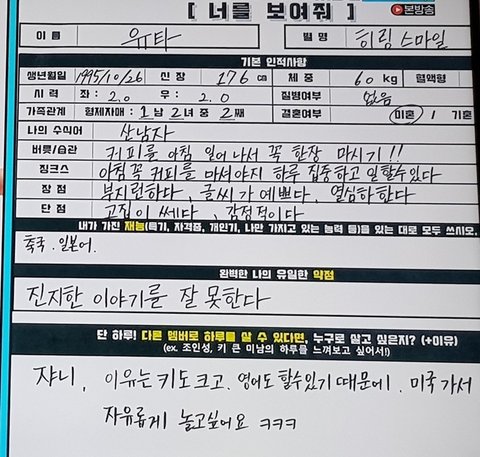 [ 너를 보여줘 ]
본방송
이 름 유타 별 명 힐링 스마일
기본 인적사항
생년월일 1995/10/26 신 장 176 cm 체 중 60 kg 혈액형
시 력 좌 : 2.0 우 : 2.0 질병여부 없음
가족관계 형제자매 : 1 남 2 녀 중 2 째 결혼여부 미혼 / 기혼
나의 수식어 상남자
버릇/습관 커피를 아침 일어나서 꼭 한잔 마시기!!
징크스 아침 꼭 커피를 마셔야지 하루 집중하고 일할수있다
장 점 부지런하다, 글씨가 예쁘다, 열심히한다
단 점 고집이 쎄다, 감정적이다
내가 가진 재능(특기, 자격증, 개인기, 나만 가지고 있는 능력 등)을 있는 대로 모두 쓰시오.
축구. 일본어.
완벽한 나의 유일한 약점
진지한 이야기를 잘 못한다
단 하루! 다른 멤버로 하루를 살 수 있다면, 누구로 살고 싶은지? (+이유)
(ex. 조인성, 키 큰 미남의 하루를 느껴보고 싶어서!)
쟈니, 이유는 키도 크고. 영어도 할수있기 때문에. 미국 가서
자유롭게 놀고싶어요 ㅋㅋㅋ